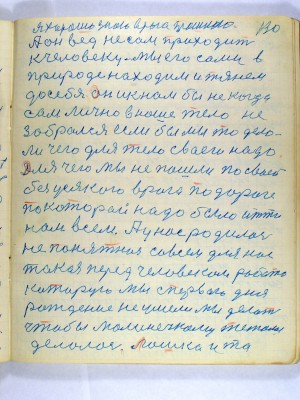 я хорошо знаю врага причину. 130
А он вед не сам приходит
к человеку. мы его сами в
природе находим и тянем
до себя он ик нам бы не когда
сам лично в наше тело не
забрался если бы мы то дела-
ли чего для тело сваего надо
для чего мы не пашли по своей
без усякого врага по дороге
по которай надо было итти
нам всем. А у нас родилас
не понятная совсем для нас
такая перед человеком работа
которую мы с первого дня
рождение не умели мы делат
чтобы малинечкому телом
делолас. Мошка и та